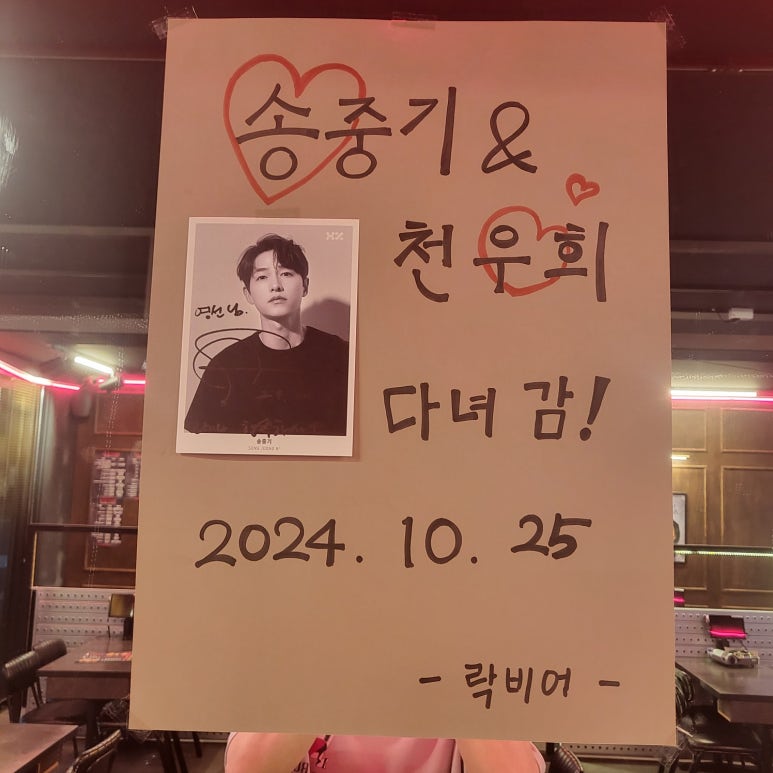 송중기 &
천우희
영선님.
송중기
SONG JOONG KI
다녀감!
2024. 10. 25
- 락비어 -